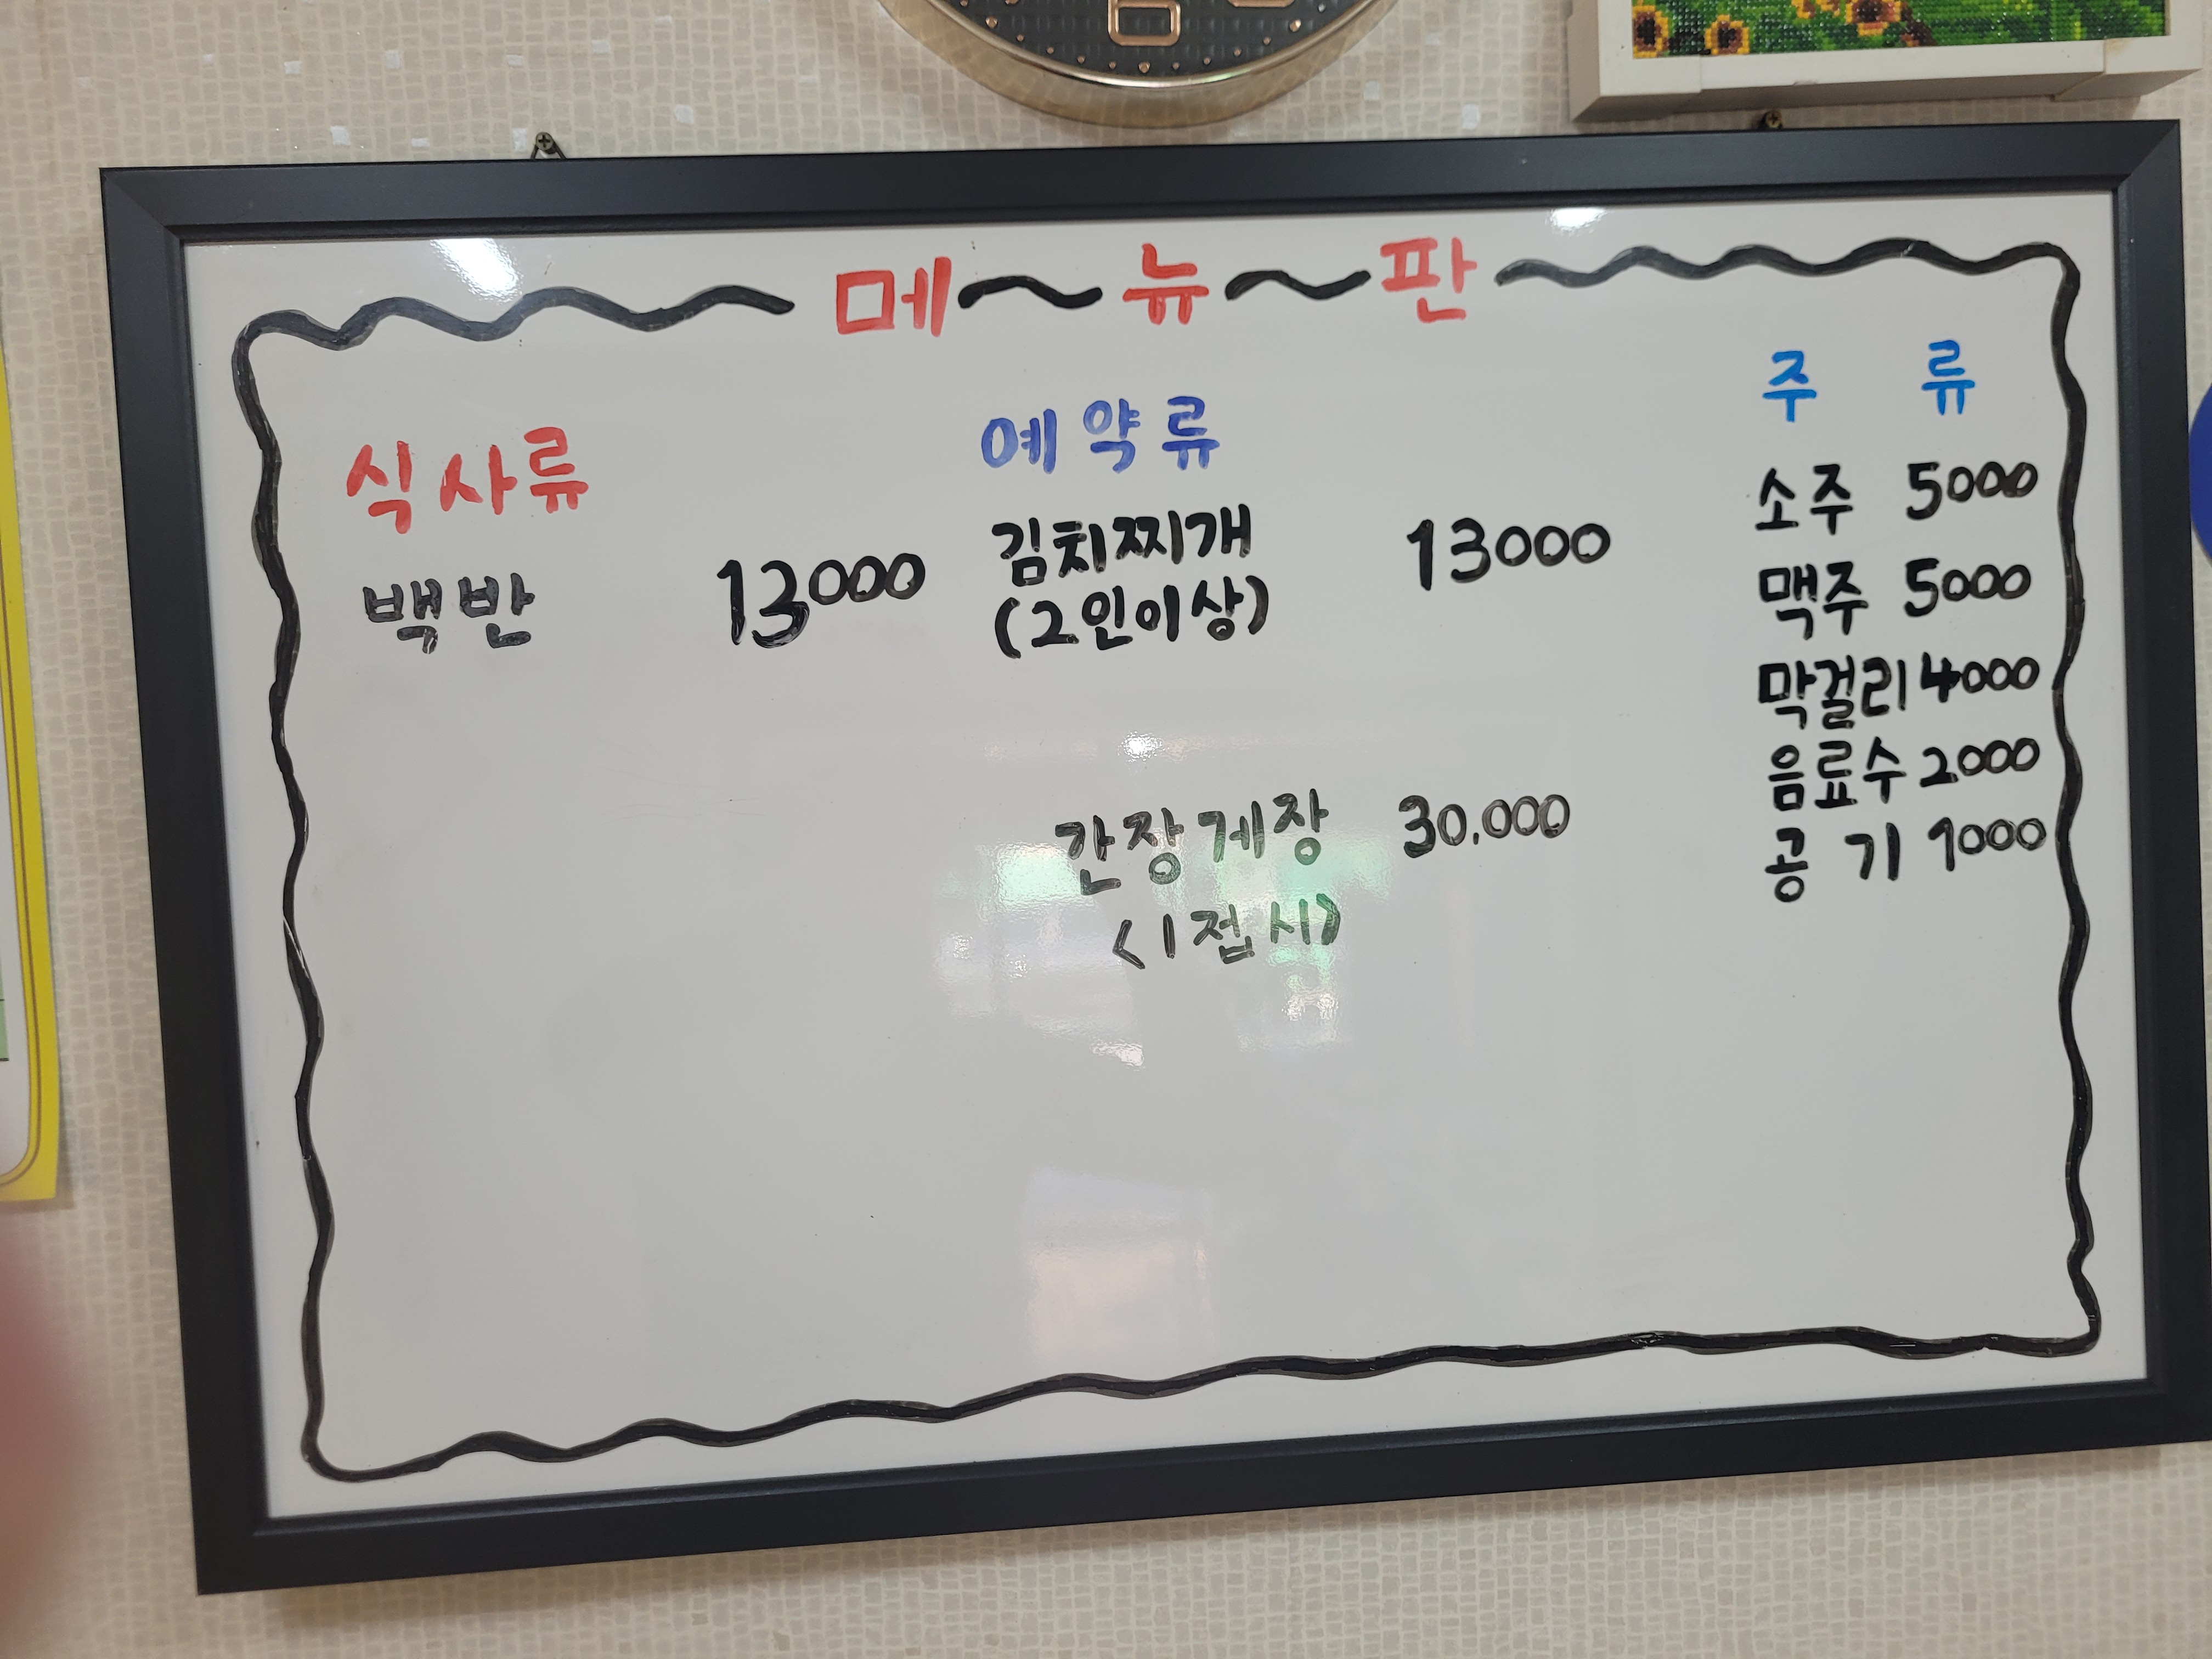 메~뉴~판
식사류
백반 13000
예약류
김치찌개 13000
(2인이상)
간장게장 30.000
<1접시>
주 류
소주 5000
맥주 5000
막걸리 4000
음료수 2000
공 기 1000